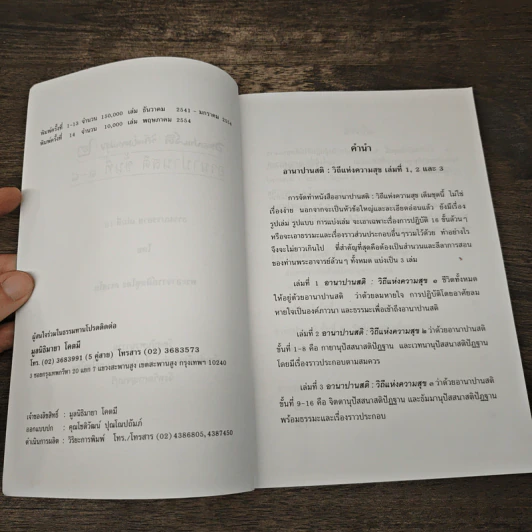 พิมพ์ครั้งที่ 1-13 จำนวน 110,000 เล่ม ธันวาคม 2541 - มกราคม 2554
พิมพ์ครั้งที่ 14 จำนวน 10,000 เล่ม พฤษภาคม 2554
ผู้สนใจร่วมในธรรมทานโปรดติดต่อ
มูลนิธิมายา โคตมี
โทร. (02) 3683991 (5 คู่สาย) โทรสาร (02) 3683573
3 ซอยกรุงเทพกรีฑา 20 แยก 7 แขวงสะพานสูง เขตสะพานสูง กรุงเทพฯ 10240
เจ้าของลิขสิทธิ์ : มูลนิธิมายา โคตมี
ออกแบบปก : คุณโชติวัฒน์ ปุณโณปถัมภ์
ดำเนินการผลิต : วิริยะการพิมพ์ โทร./โทรสาร (02) 4386805, 4387450
คำนำ
อานาปานสติ : วิถีแห่งความสุข เล่มที่ 1, 2 และ 3
การจัดทำหนังสืออานาปานสติ : วิถีแห่งความสุข เต็มชุดนี้ ไม่ใช่
เรื่องง่าย นอกจากจะเป็นหัวข้อใหญ่และละเอียดอ่อนแล้ว ยังมีเรื่อง
รูปเล่ม รูปแบบ การแบ่งเล่ม จะเอาเฉพาะเรื่องการปฏิบัติ 16 ขั้นล้วนๆ
หรือจะเอาธรรมะและเรื่องราวส่วนประกอบอื่นๆรวมไว้ด้วย ทำอย่างไร
จึงจะไม่ยาวเกินไป ที่สำคัญที่สุดคือต้องเป็นสำนวนและลีลาการสอน
ของท่านพระอาจารย์ล้วนๆ ทั้งหมด แบ่งเป็น 3 เล่ม
เล่มที่ 1 อานาปานสติ : วิถีแห่งความสุข ๑ ชีวิตทั้งหมด
ให้อยู่ด้วยอานาปานสติ ว่าด้วยลมหายใจ การปฏิบัติโดยอาศัยลม
หายใจเป็นองค์ภาวนา และธรรมะเพื่อเข้าถึงอานาปานสติ
เล่มที่ 2 อานาปานสติ : วิถีแห่งความสุข ๒ ว่าด้วยอานาปานสติ
ขั้นที่ 1-8 คือ กายานุปัสสนาสติปัฏฐาน และเวทนานุปัสสนาสติปัฏฐาน
โดยมีเรื่องราวประกอบตามสมควร
เล่มที่ 3 อานาปานสติ : วิถีแห่งความสุข ๓ ว่าด้วยอานาปานสติ
ขั้นที่ 9-16 คือ จิตตานุปัสสนาสติปัฏฐาน และธัมมานุปัสสนาสติปัฏฐาน
พร้อมธรรมะและเรื่องราวประกอบ